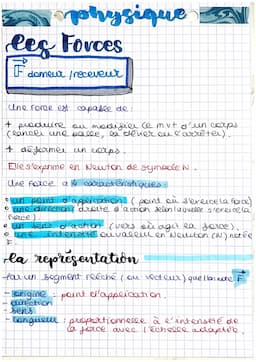 physique
les Forces
F donneur / receveur
Une force est capable de :
+ produire ou modifier le mvt d'un corps
(lancer une balle, la dévier ou l'arrêter).
+ déformer un corps.
Elle s'exprime en Newton de symbole N.
Une force a 4 caractéristiques :
• un point d'application (point où s'exerce la force)
• une direction droite d'action selon laquelle s'exerce la
force).
• un sens d'action (vers où agit la force).
• une intensité ou valeur en Newton (N) notée
F.
la représentation
Par un segment fléché (ou vecteur) que l'on note F
- origine : point d'application.
- direction
- sens
- longueur : proportionnelle à l'intensité de
la force avec l'échelle adaptée.